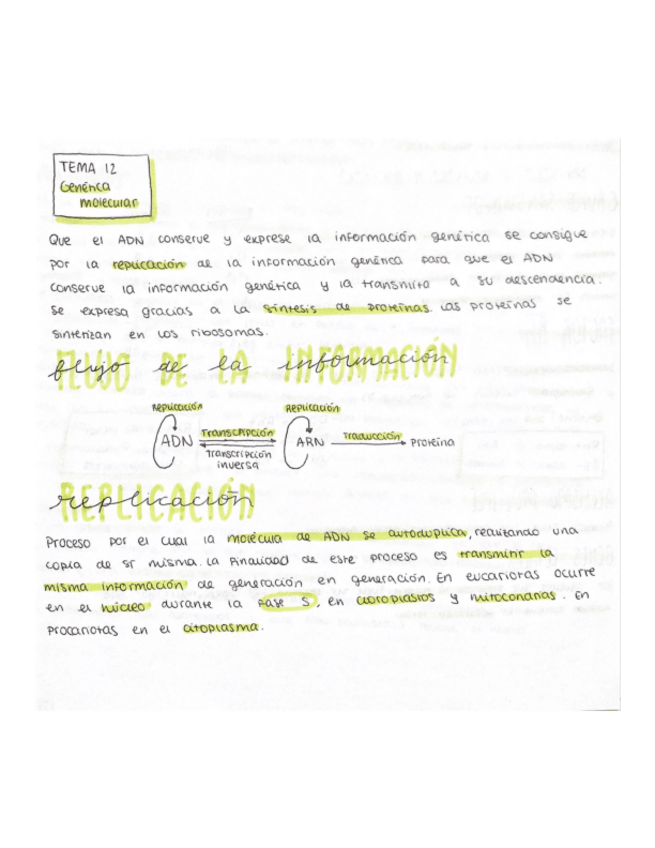 TEMA 12
Genética
molecular
Que el ADN conserve y exprese la información genética se consigue
por la replicación de la información genética para que el ADN
conserve la información genética y la transmita a su descendencia.
Se expresa gracias a la síntesis de proteínas. Las proteínas se
sintetizan en los ribosomas.
flujo de la información
FLUJO DE LA INFORMACIÓN
Replicación Replicación
ADN Transcripción ARN Traducción Proteína
Transcripción
inversa
replicación
REPLICACIÓN
Proceso por el cual la molécula de ADN se autoduplica, realizando una
copia de sí misma. La finalidad de este proceso es transmitir la
misma información de generación en generación. En eucariotas ocurre
en el núcleo durante la fase S, en cloroplastos y mitocondrias. En
procariotas en el citoplasma.